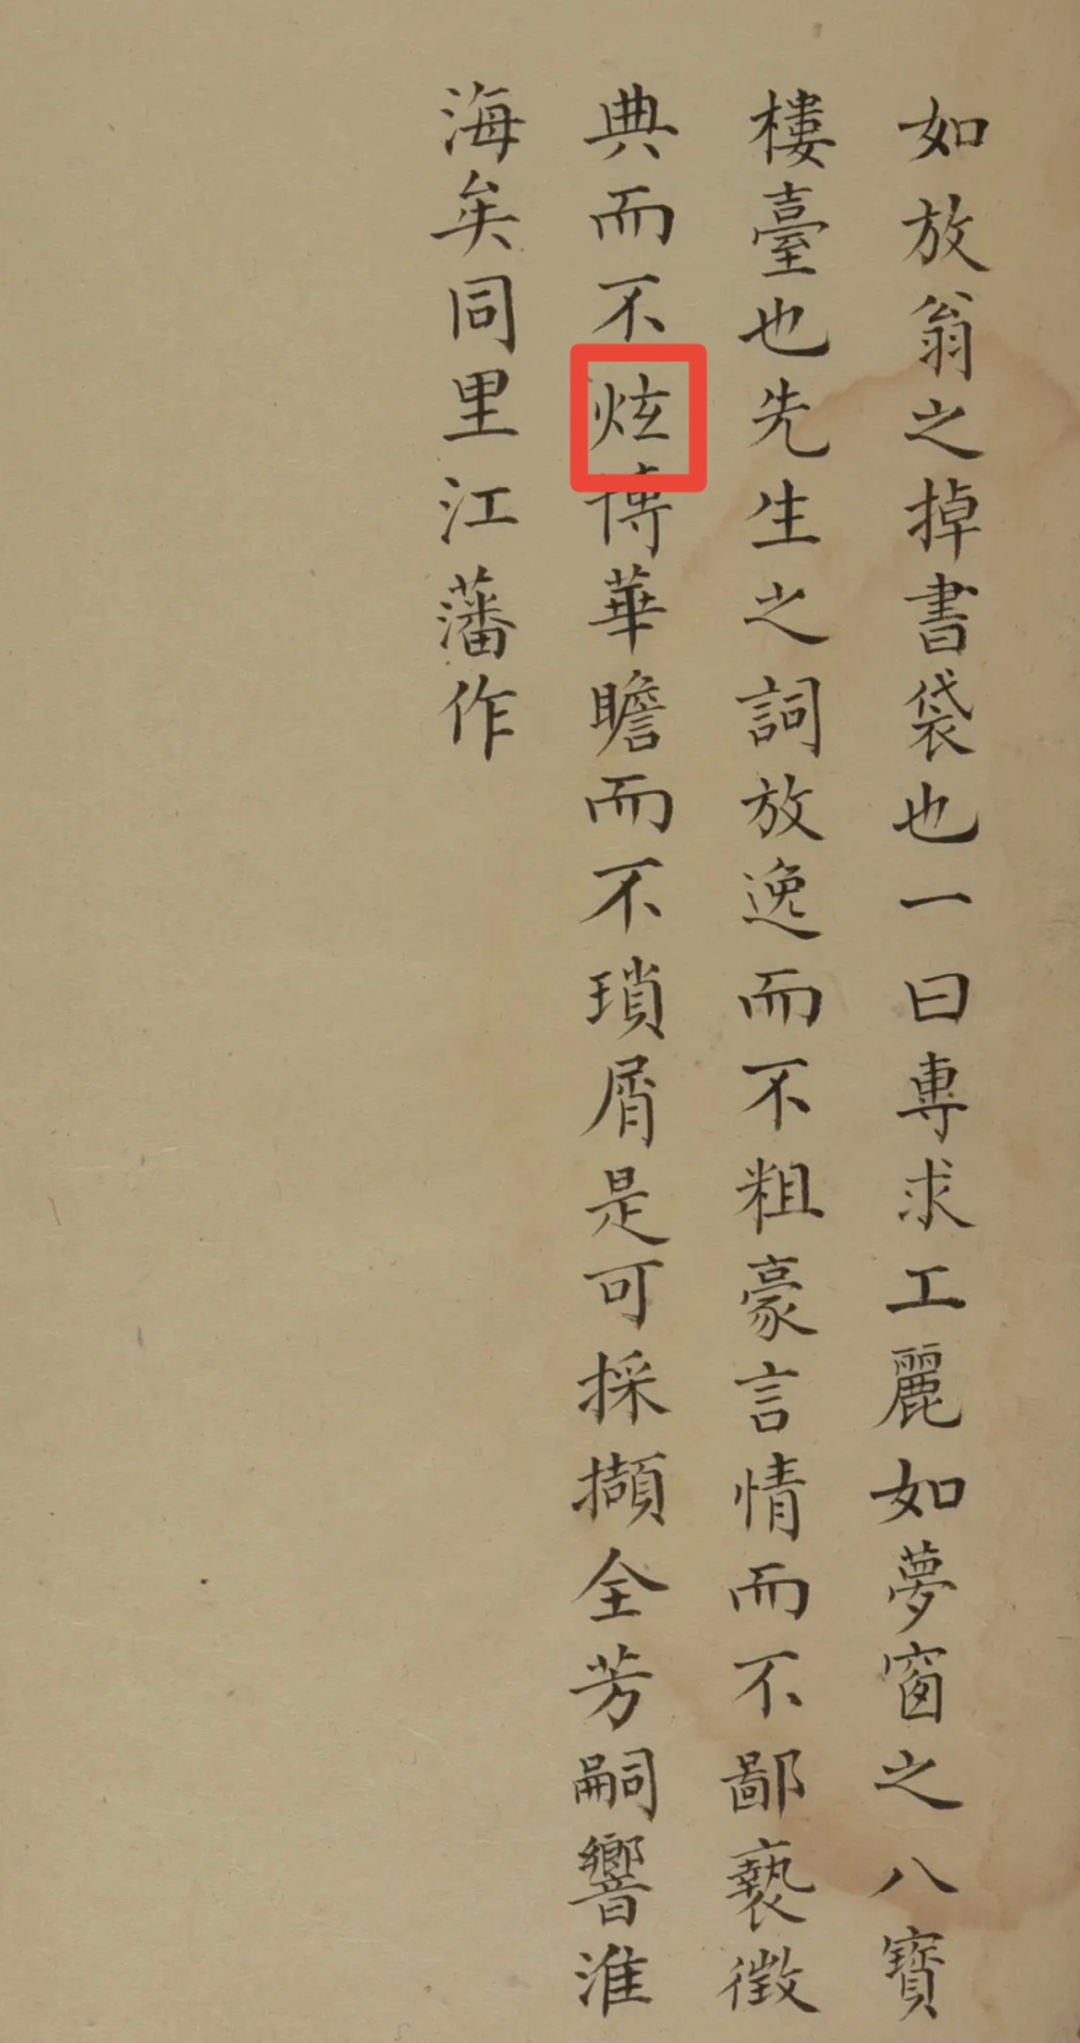 如放翁之掉書袋也一曰專求工麗如夢窗之八寶
樓臺也先生之詞放逸而不粗豪言情而不鄙褻徵
典而不炫博華瞻而不瑣屑是可採擷全芳嗣響淮
海矣同里江藩作